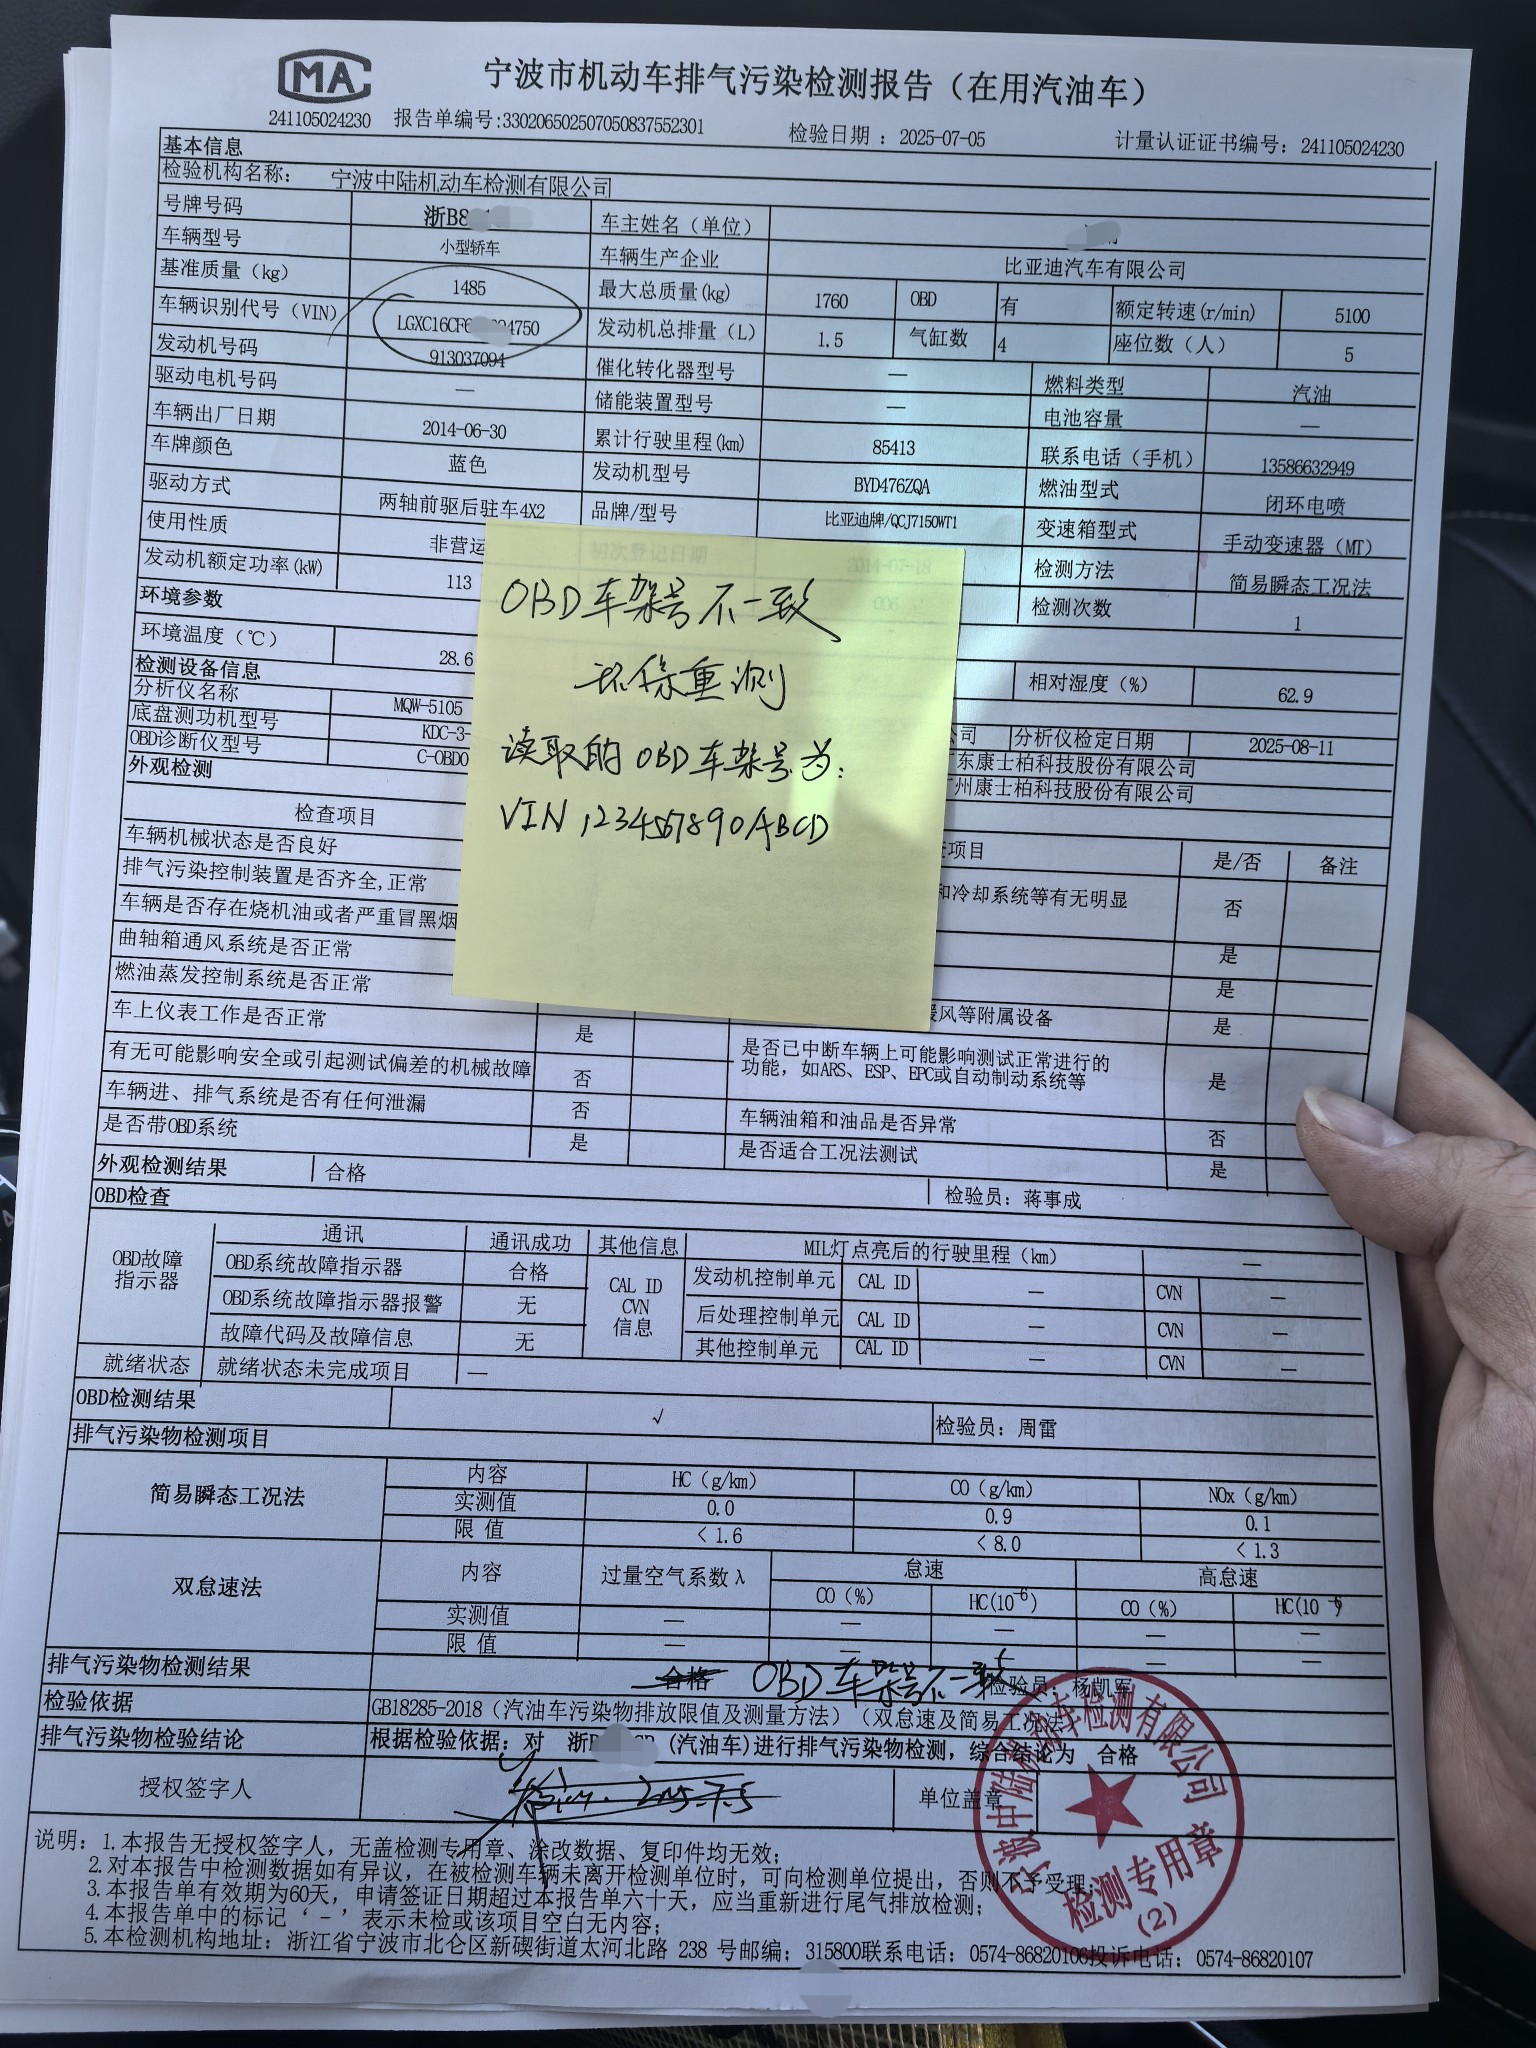 MA
宁波市机动车排气污染检测报告（在用汽油车）
241105024230 报告单编号:330206502507050837552301 检验日期：2025-07-05 计量认证证书编号：241105024230
基本信息
检验机构名称： 宁波中陆机动车检测有限公司
号牌号码 浙B8 车主姓名（单位）
车辆型号 小型轿车 车辆生产企业 比亚迪汽车有限公司
基准质量（kg） 1485 最大总质量(kg) 1760 OBD 有 额定转速(r/min) 5100
车辆识别代号（VIN） LGXC16CF 4750 发动机总排量（L） 1.5 气缸数 4 座位数（人） 5
发动机号码 913037094 催化转化器型号 — 燃料类型 汽油
驱动电机号码 — 储能装置型号 — 电池容量 —
车辆出厂日期 2014-06-30 累计行驶里程(km) 85413 联系电话（手机） 13586632949
车牌颜色 蓝色 发动机型号 BYD476ZQA 燃油型式 闭环电喷
驱动方式 两轴前驱后驻车4X2 品牌/型号 比亚迪牌/QCJ7150WT1 变速箱型式 手动变速器（MT）
使用性质 非营运 初次登记日期 2014-07-18 检测方法 简易瞬态工况法
发动机额定功率(kW) 113 006 检测次数 1
环境参数
环境温度（℃） 28.6 相对湿度（%） 62.9
检测设备信息
分析仪名称 MQW-5105 公司 分析仪检定日期 2025-08-11
底盘测功机型号 KDC-3- 东康士柏科技股份有限公司
OBD诊断仪型号 C-OBD0 州康士柏科技股份有限公司
外观检测
OBD车架号不一致
环保重测
读取的OBD车架号为：
VIN 1234567890ABCD
检查项目 项目 是/否 备注
车辆机械状态是否良好 和冷却系统等有无明显 否
排气污染控制装置是否齐全,正常
车辆是否存在烧机油或者严重冒黑烟 是
曲轴箱通风系统是否正常 是
燃油蒸发控制系统是否正常 暖风等附属设备 是
车上仪表工作是否正常 是 是否已中断车辆上可能影响测试正常进行的
功能，如ARS、ESP、EPC或自动制动系统等 是
有无可能影响安全或引起测试偏差的机械故障 否
车辆进、排气系统是否有任何泄漏 否 车辆油箱和油品是否异常 否
是否带OBD系统 是 是否适合工况法测试 是
外观检测结果 合格 检验员：蒋事成
OBD检查
OBD故障
指示器
通讯 通讯成功 其他信息 MIL灯点亮后的行驶里程（km） —
OBD系统故障指示器 合格 CAL ID
CVN
信息
发动机控制单元 CAL ID — CVN —
OBD系统故障指示器报警 无 后处理控制单元 CAL ID — CVN —
故障代码及故障信息 无 其他控制单元 CAL ID — CVN —
就绪状态 就绪状态未完成项目 —
OBD检测结果 √ 检验员：周雷
排气污染物检测项目
简易瞬态工况法 内容 HC（g/km） CO（g/km） NOx（g/km）
实测值 0.0 0.9 0.1
限 值 ＜1.6 ＜8.0 ＜1.3
双怠速法 内容 过量空气系数λ 怠速 高怠速
CO（%） HC(10⁻⁶) CO（%） HC(10⁻⁶)
实测值 — — — — —
限 值 — — — — —
排气污染物检测结果 合格 OBD车架号不一致 检验员：杨凯军
检验依据 GB18285-2018（汽油车污染物排放限值及测量方法）（双怠速及简易工况法）
排气污染物检验结论 根据检验依据：对 浙B (汽油车)进行排气污染物检测，综合结论为 合格
授权签字人 2025.7.5 单位盖章
宁波中陆机动车检测有限公司
检测专用章
(2)
说明：1.本报告无授权签字人，无盖检测专用章、涂改数据、复印件均无效；
2.对本报告中检测数据如有异议，在被检测车辆未离开检测单位时，可向检测单位提出，否则不予受理；
3.本报告单有效期为60天，申请签证日期超过本报告单六十天，应当重新进行尾气排放检测；
4.本报告单中的标记‘－’表示未检或该项目空白无内容；
5.本检测机构地址：浙江省宁波市北仑区新碶街道太河北路 238 号邮编；315800联系电话：0574-86820106投诉电话：0574-86820107